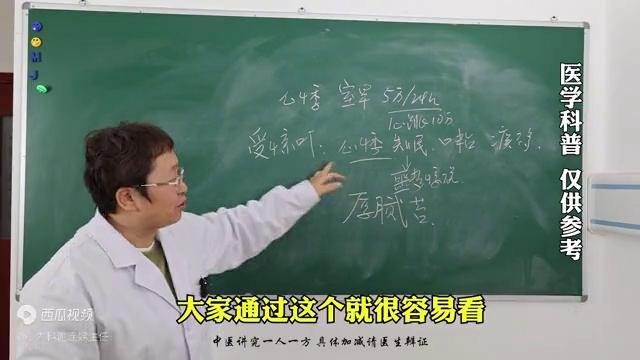 心悸 室早 5万/24h
心跳10万
受惊吓、心悸 失眠、口粘 痰多、
噩梦情况
厚腻苔、
医学科普 仅供参考
西瓜视频
大家通过这个就很容易看
中医讲究一人一方 具体加减请医生辩证